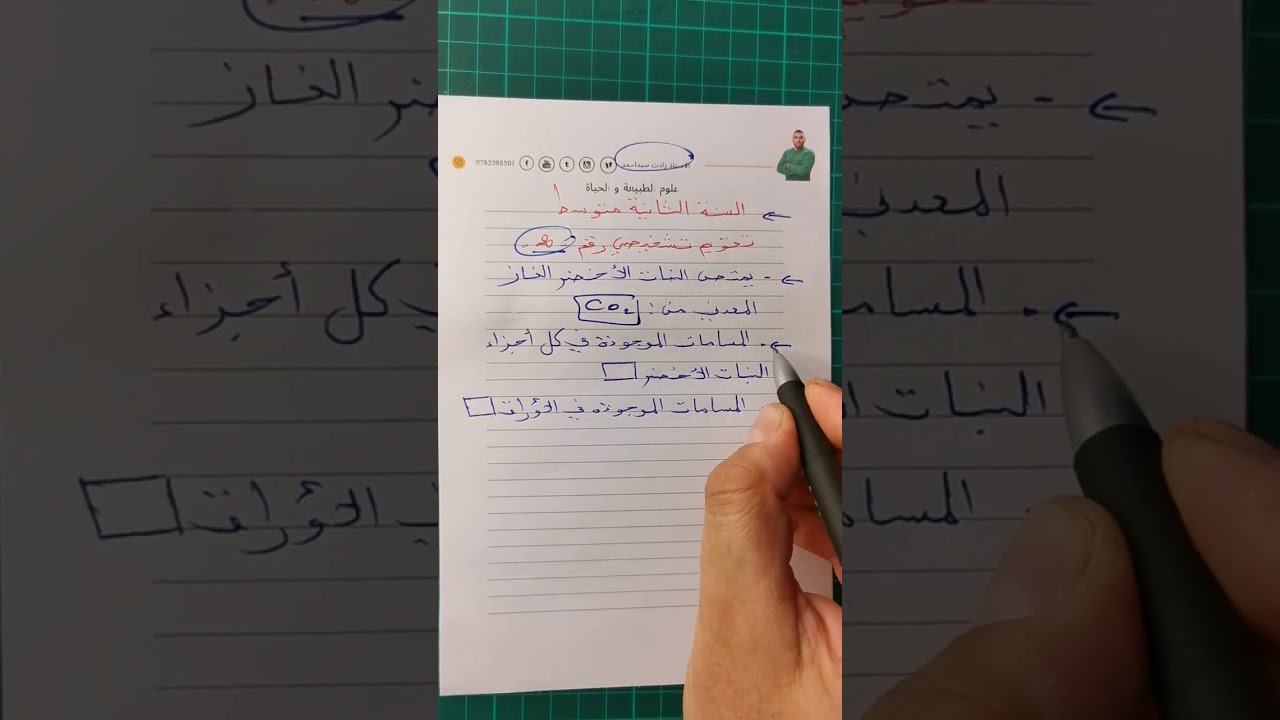 الأستاذ زادت سيداحمد
0782088501
علوم الطبيعة و الحياة
السنة الثانية متوسط
تقويم تشخيصي رقم
- يمتص النبات الأخضر الغاز
المعدني من : CO₂
- المسامات الموجودة في كل أجزاء
النبات الأخضر
المسامات الموجودة في الأوراق